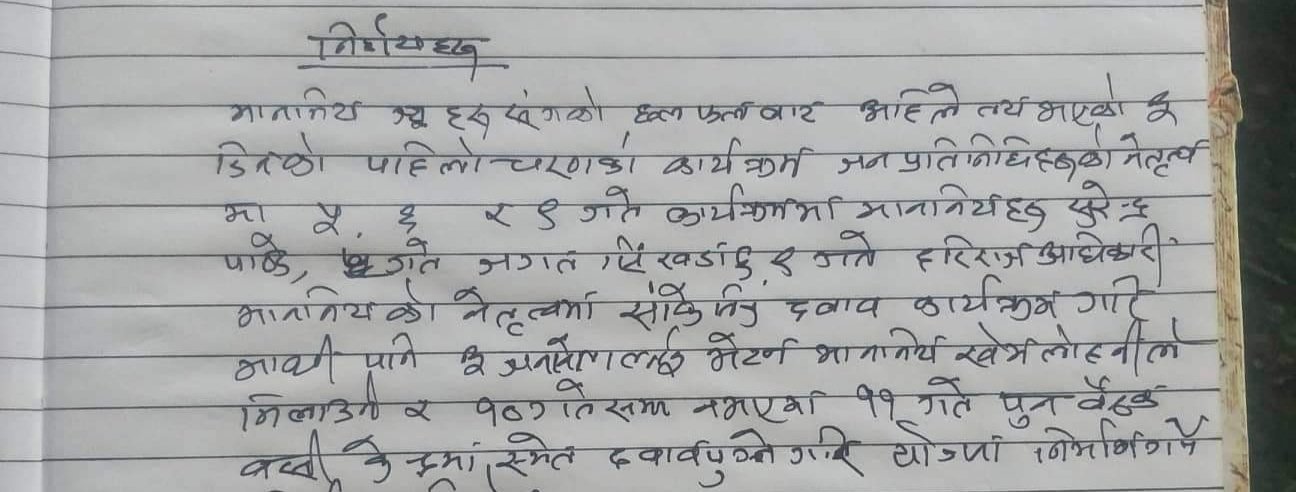 निर्णयहरु
मानानिय ज्यू हरु संगको छलफल बाट अहिले तय भएको ३
दिनको पाहिलो चरणको कार्यक्रम जनप्रातिनिधिहरुको नेतृत्व
मा ५, ६ र ९ गते कार्यक्रममा मानानियहरु सुरेन्द्र
पाण्डे, गते जगत गते हरिराज अधिकारी
मानानिय को नेतृत्वमा सांकेतिक दवाव कार्यक्रम गरि
माथी पानि लाई भेटन मानानिय खेम लोहनीले
मिलाउने र १० गते सम्म नभएमा ११ गते पुन वैठक
वस्ती केन्द्रमा समेत दवावपुग्ने गरि योजना निर्माण गर्ने